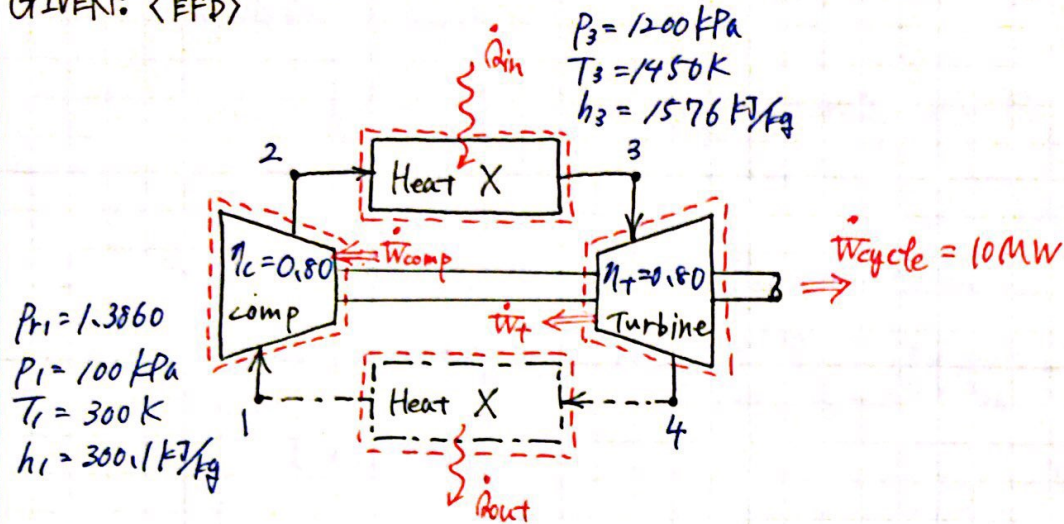 GIVEN: <EFD>
Q̇in
P3 = 1200 kPa
T3 = 1450 K
h3 = 1576 kJ/kg
2
Heat X
3
ηc = 0.80
comp
Ẇcomp
ηt = 0.80
Turbine
Ẇt
Ẇcycle = 10 MW
Pr1 = 1.3860
P1 = 100 kPa
T1 = 300 K
h1 = 300.1 kJ/kg
1
Heat X
4
Q̇out